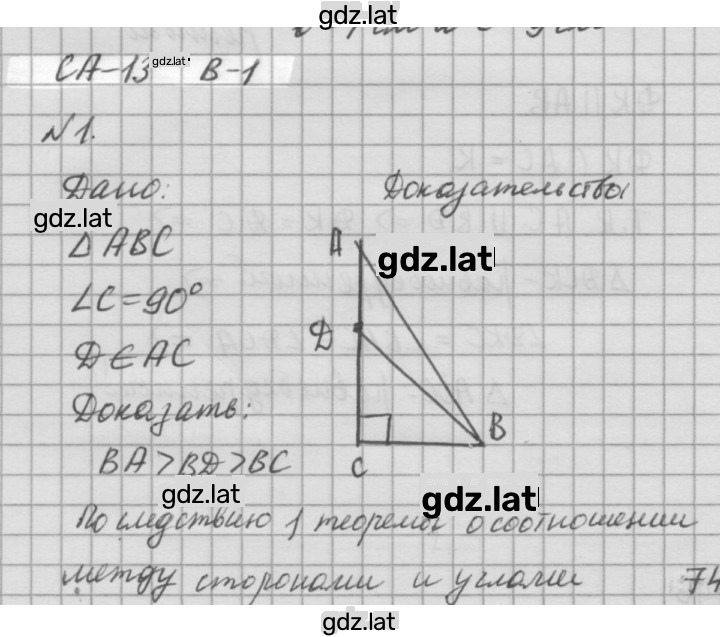 gdz.lat
СА-13 gdz.lat В-1
№1.
Дано:
Доказательство
gdz.lat
Δ ABC
A
gdz.lat
∠C=90°
D
D∈AC
Доказать:
B
BA>BD>BC
C
gdz.lat
gdz.lat
По следствию 1 теоремы о соотношении
между сторонами и углами
74
gdz.lat